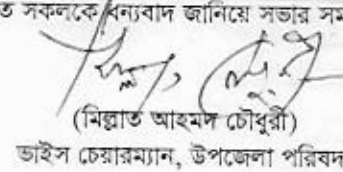 ত সকলকে ধন্যবাদ জানিয়ে সভার সম
(মিল্লাত আহমদ চৌধুরী)
ভাইস চেয়ারম্যান, উপজেলা পরিষদ